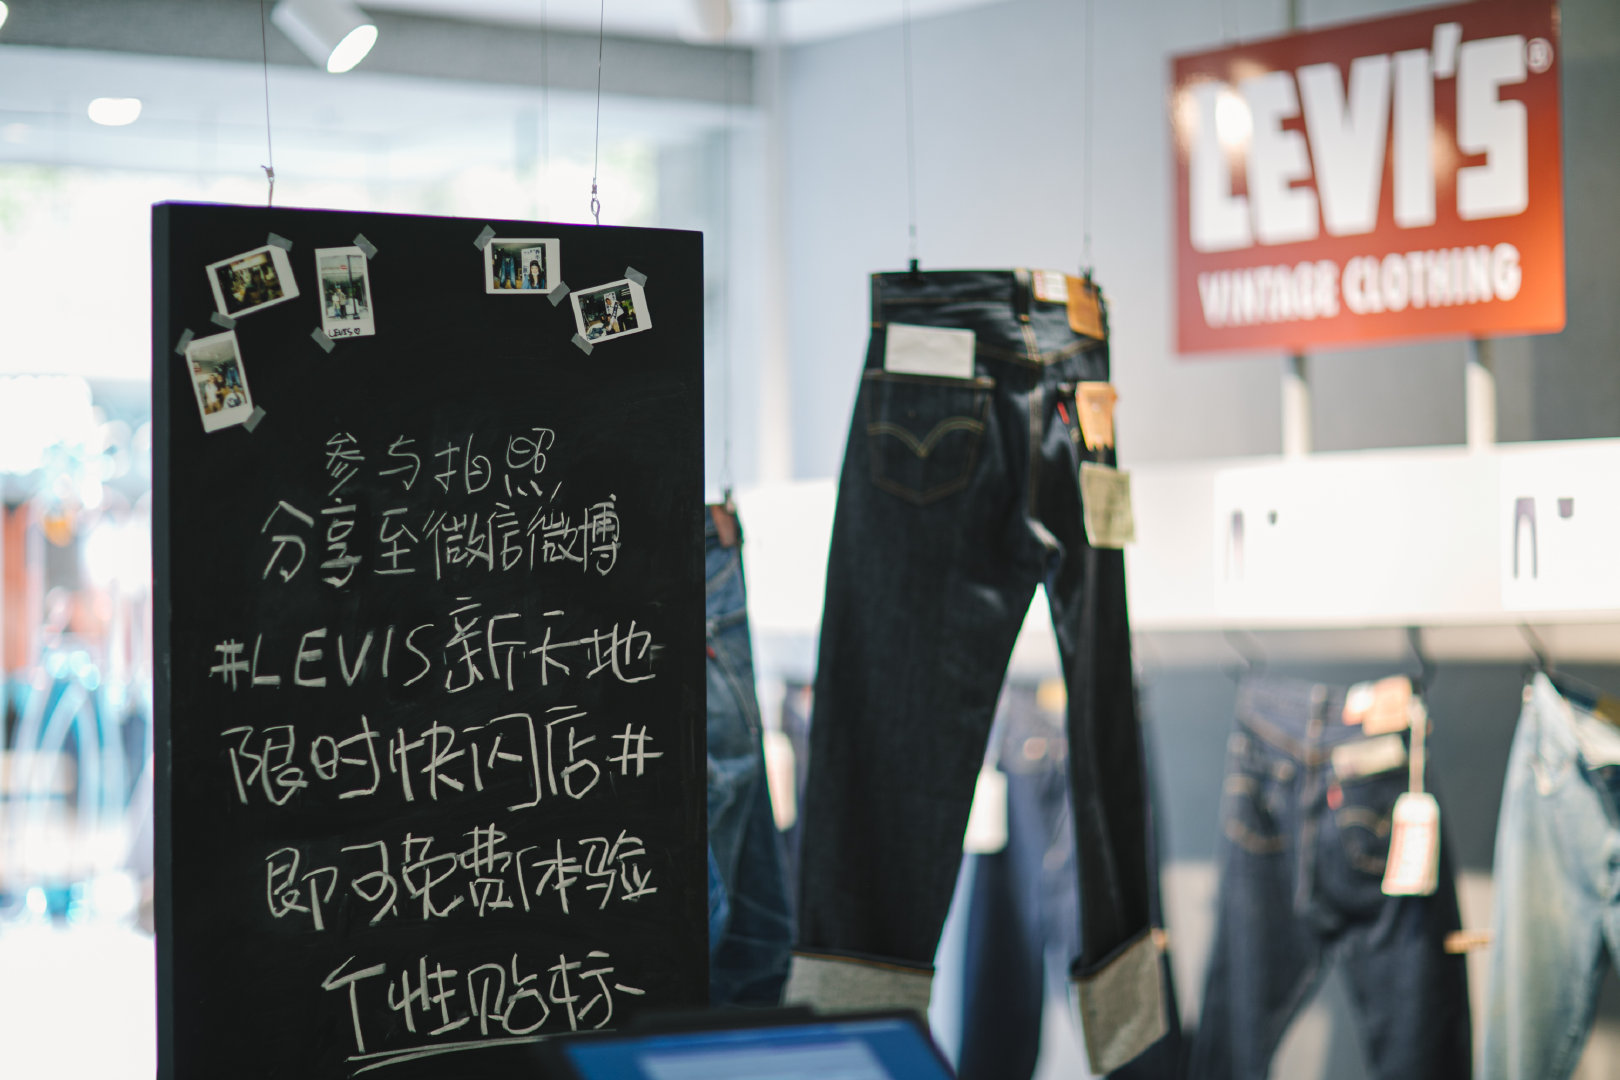 LEVI'S®
VINTAGE CLOTHING
LEVIS
参与拍照
分享至微信微博
#LEVIS新天地
限时快闪店#
即可免费体验
个性贴标